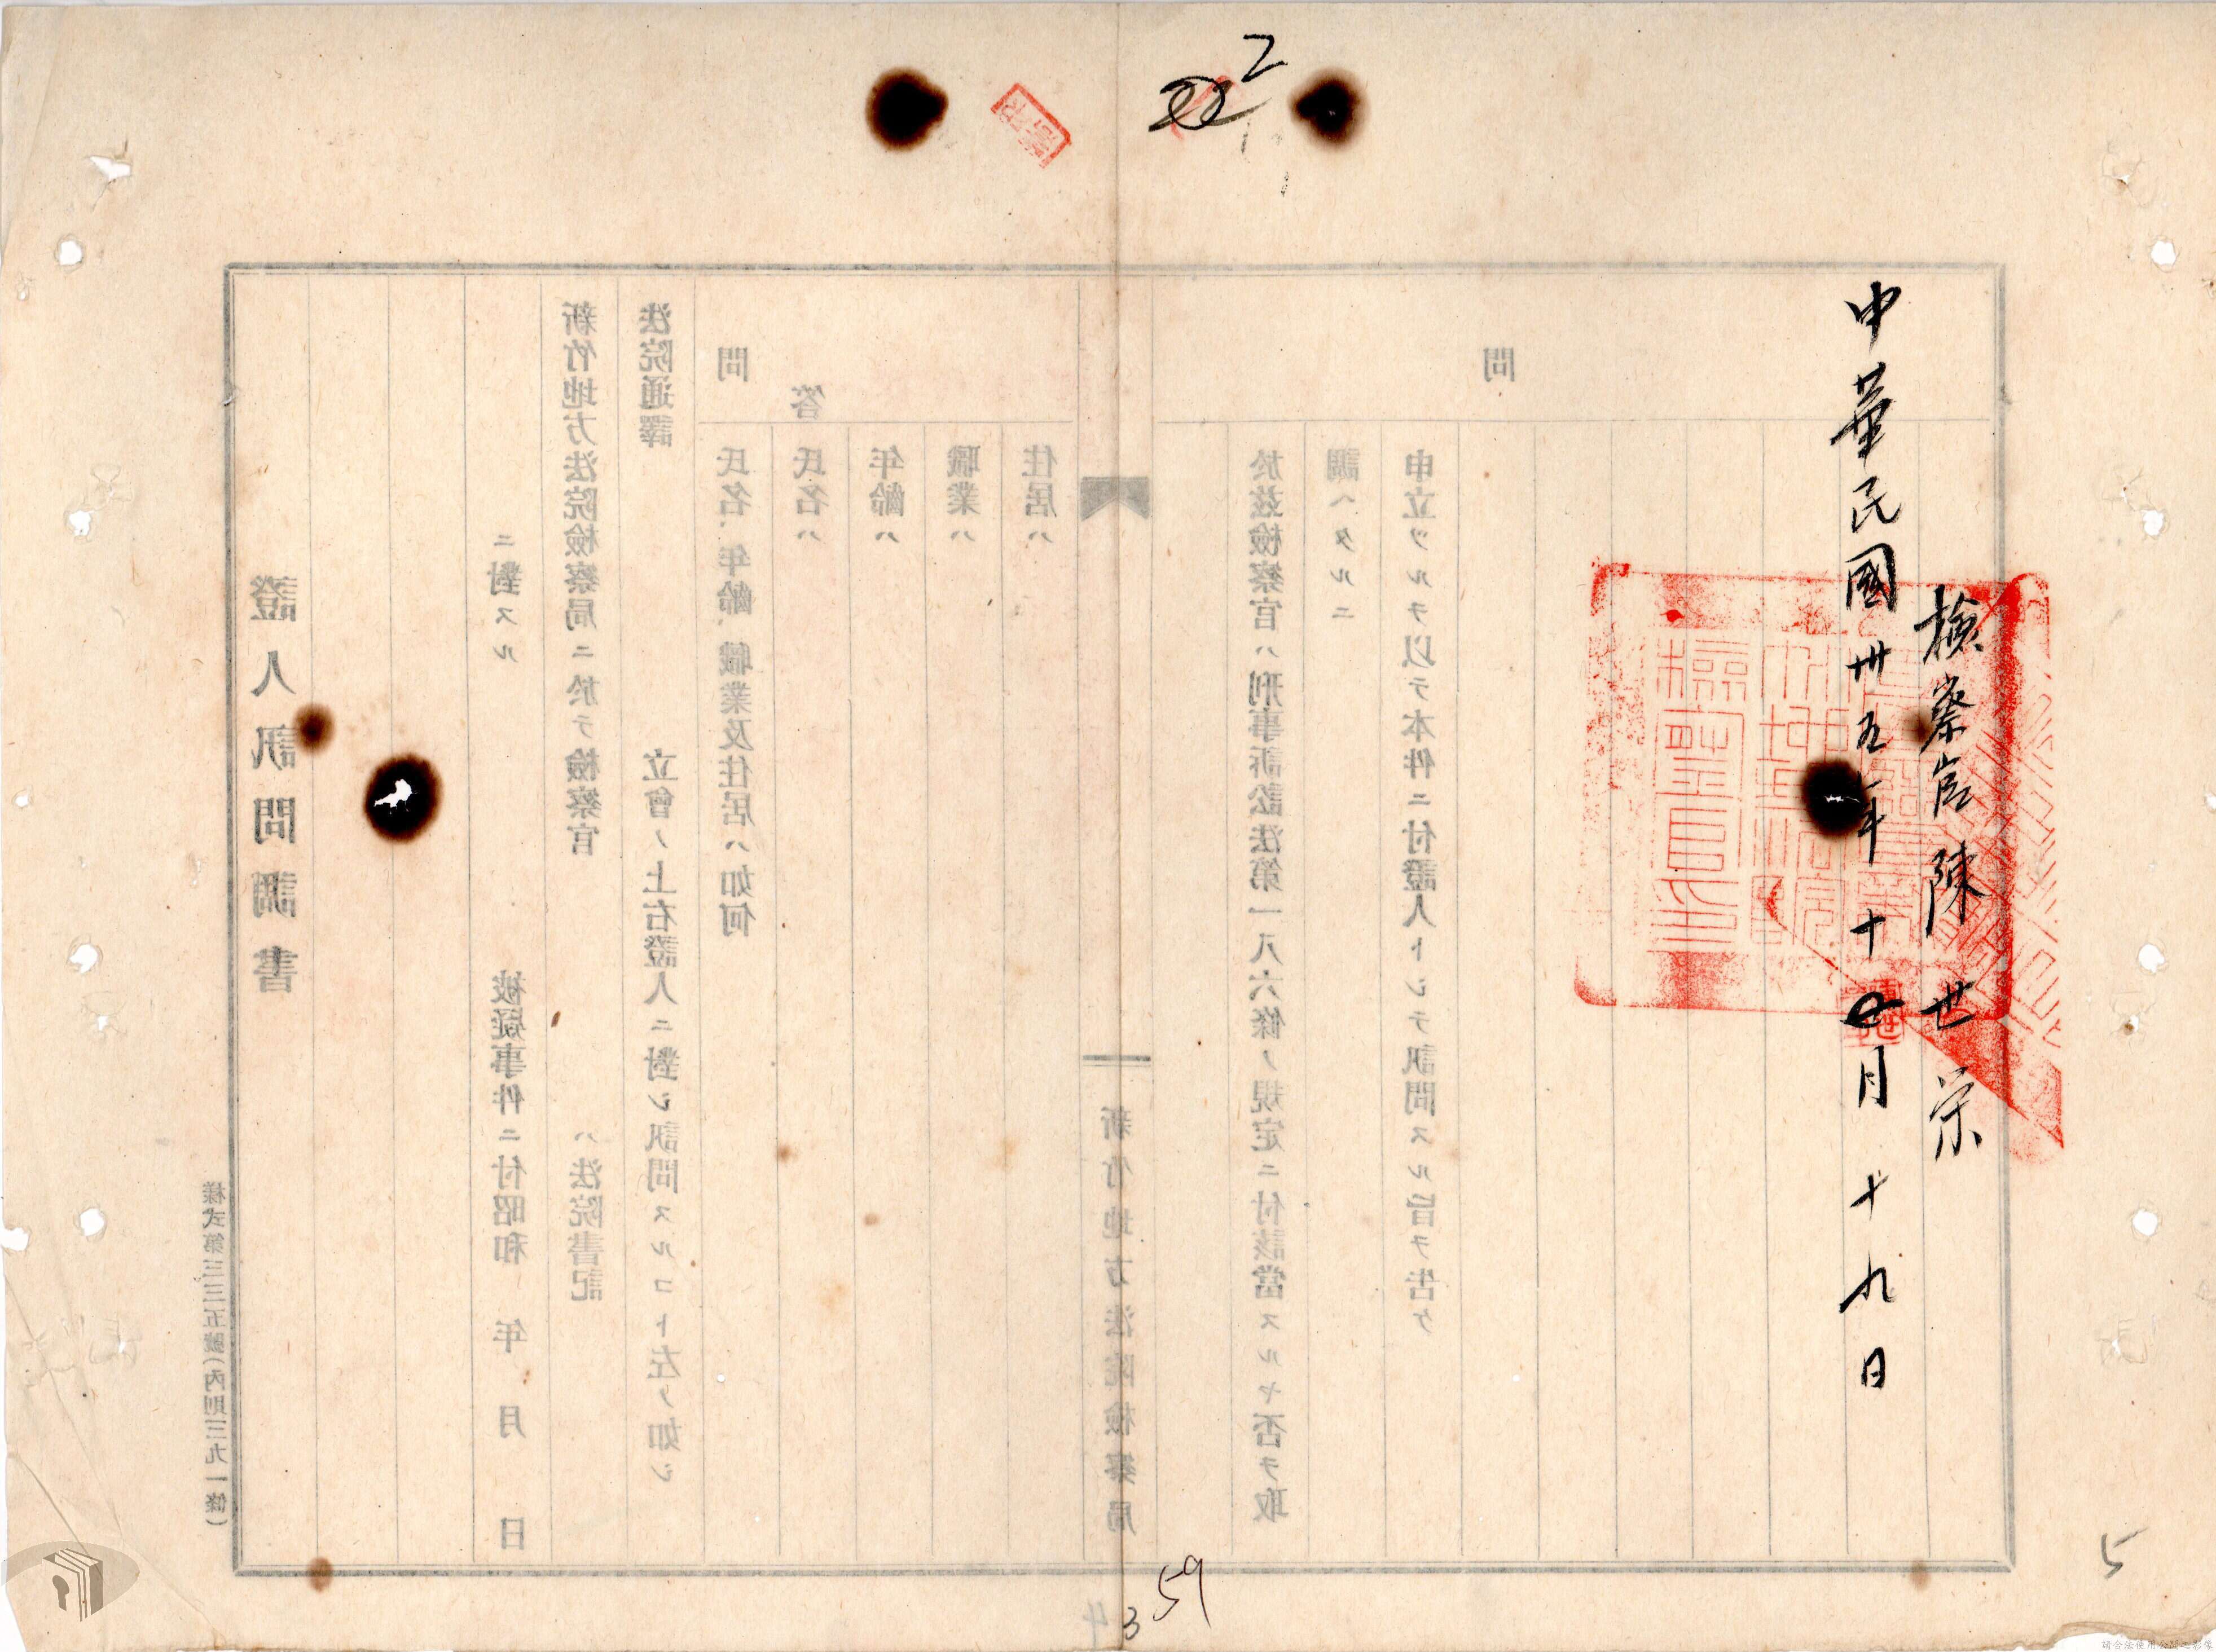 2
檢察官陳世栄
中華民國卅五年十月十九日
問
申立ツルヲ以テ本件ニ付證人トシテ訊問スル旨ヲ告ケ
調ヘタルニ
於茲檢察官ハ刑事訴訟法第一八六條ノ規定ニ付該當スルヤ否ヲ取
新竹地方法院檢察局
住居ハ
職業ハ
年齡ハ
答
氏名ハ
問
氏名、年齡、職業及住居ハ如何
法院通譯
立會ノ上右證人ニ對シ訊問スルコト左ノ如シ
新竹地方法院檢察局ニ於テ檢察官
ハ法院書記
ニ對スル
被疑事件ニ付昭和 年 月 日
證人訊問調書
樣式第三三五號(內則三九一條)
59
3
4
5
請合法使用公開之影像